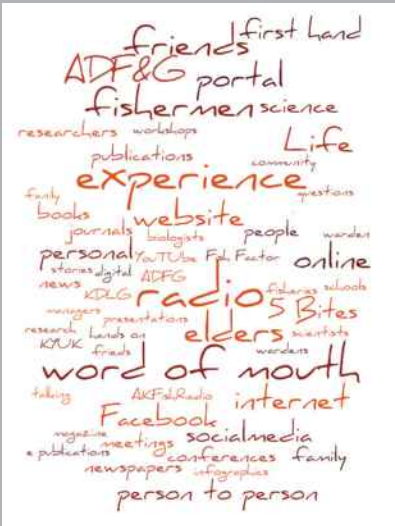 friends first hand
ADF&G portal
fishermen science
researchers workshops Life
publications community
experience
family questions
books website
journals biologists people warden
personal YouTube Fish Factor online
stories digital ADFG
news KDLG radio fisheries schools
managers presentations 5 Bites
research hands on elders scientists
KYUK frieds wardens
word of mouth
talking AKFishRadio internet
Facebook
magazine meetings socialmedia
e publications conferences family
newspapers infographics
person to person